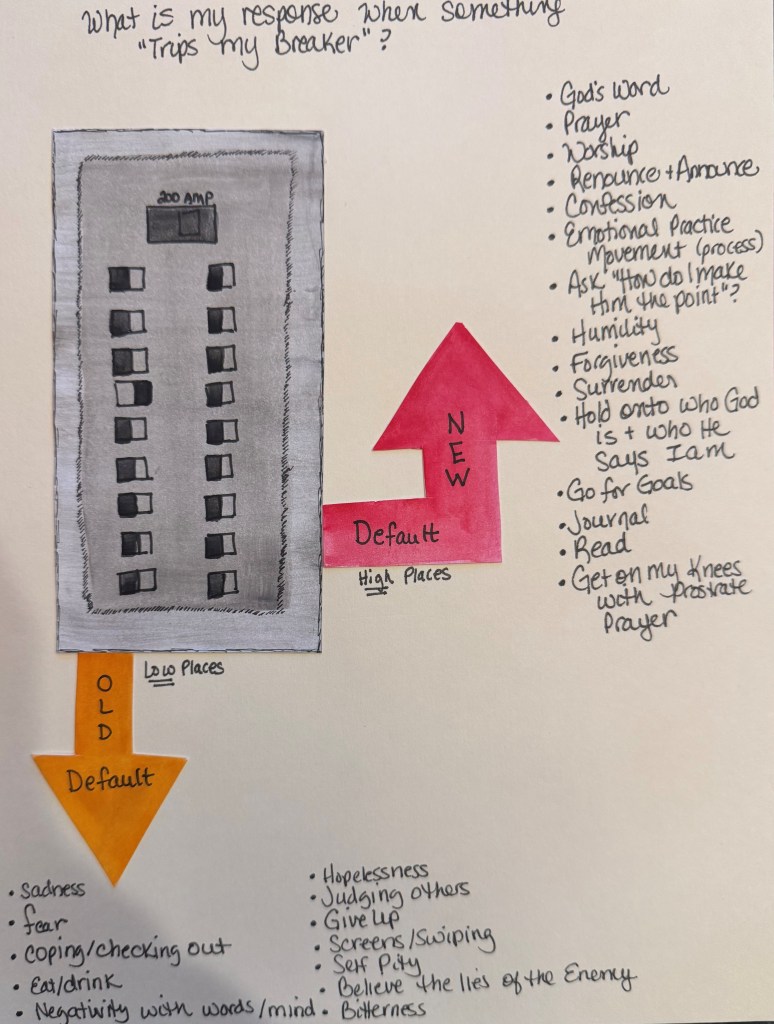 What is my response when something
"Trips my Breaker"?
• God's Word
• Prayer
• Worship
• Renounce + Announce
• Confession
• Emotional Practice
Movement (process)
• Ask "How do I make
Him the point"?
• Humility
• Forgiveness
• Surrender
• Hold onto who God
is + who He
Says I am
• Go for Goals
• Journal
• Read
• Get on my Knees
with Prostrate
Prayer
200 AMP
NEW
Default
High Places
Low Places
OLD
Default
• Sadness
• fear
• coping/checking out
• Eat/drink
• Negativity with words/mind
• Hopelessness
• Judging others
• Give Up
• Screens/Swiping
• Self Pity
• Believe the lies of the Enemy
• Bitterness